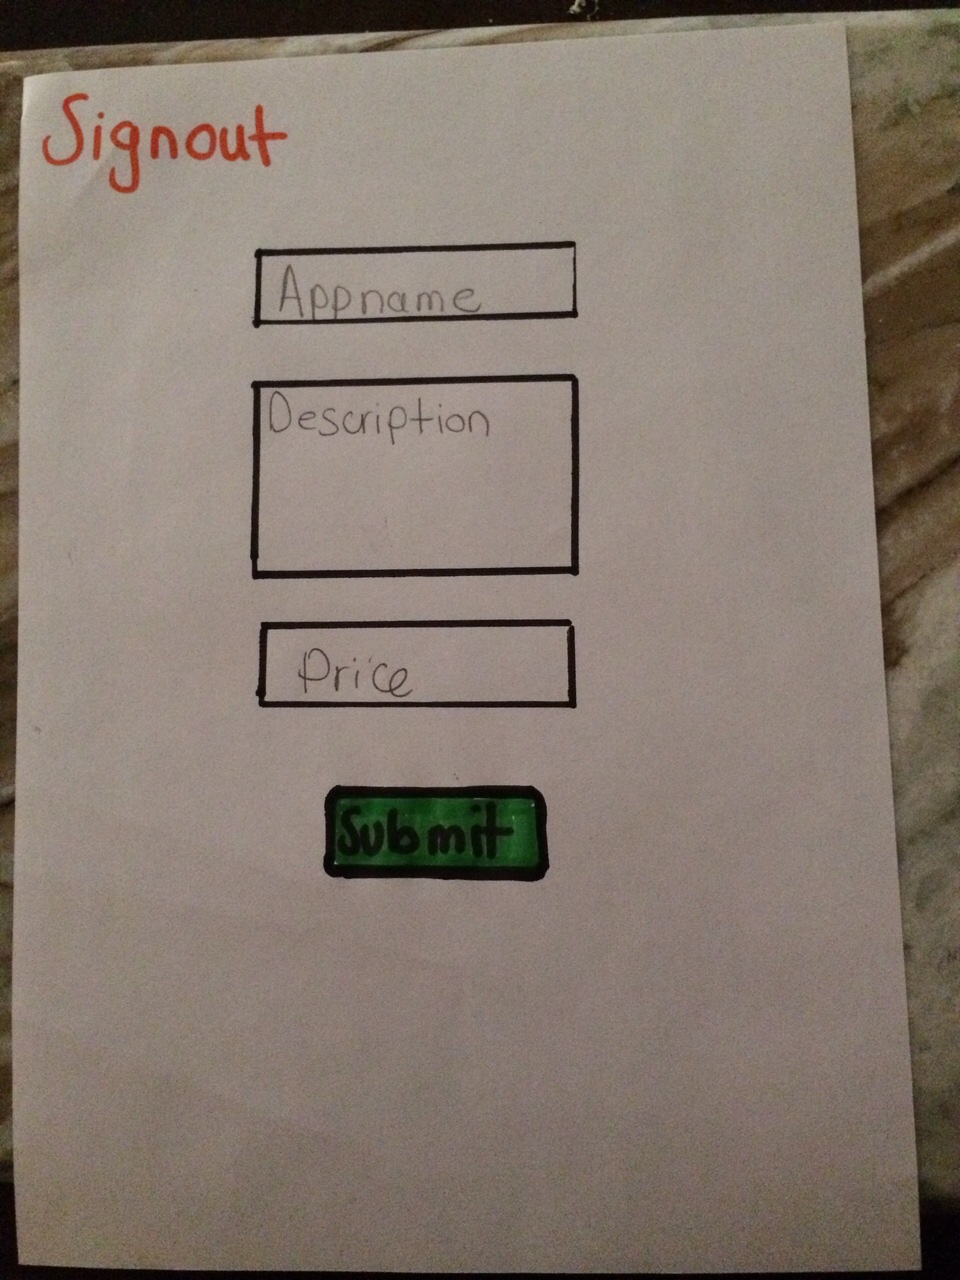 Signout
Appname
Description
Price
Submit